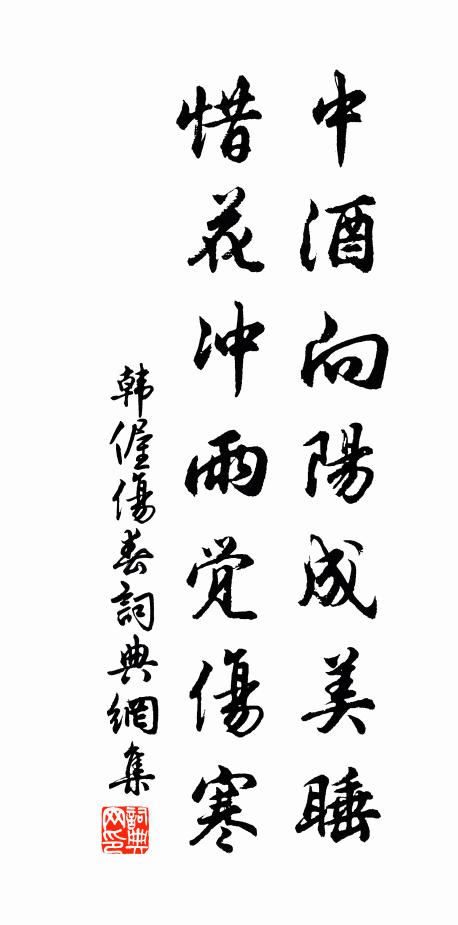 中酒向陽成美睡
惜花冲雨覚傷寒
韓偓傷春詞典網集
詞典
网印